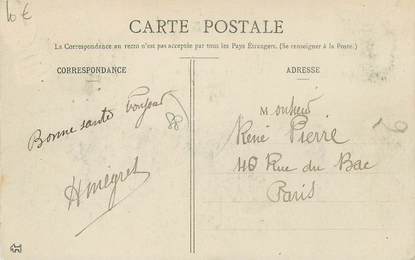 10 €
CARTE POSTALE
La Correspondance au recto n'est pas acceptée par tous les Pays Étrangers. (Se renseigner à la Poste.)
CORRESPONDANCE
Bonne santé Bonjour
ADRESSE
Monsieur
René Pierre
48 Rue du Bac
Paris